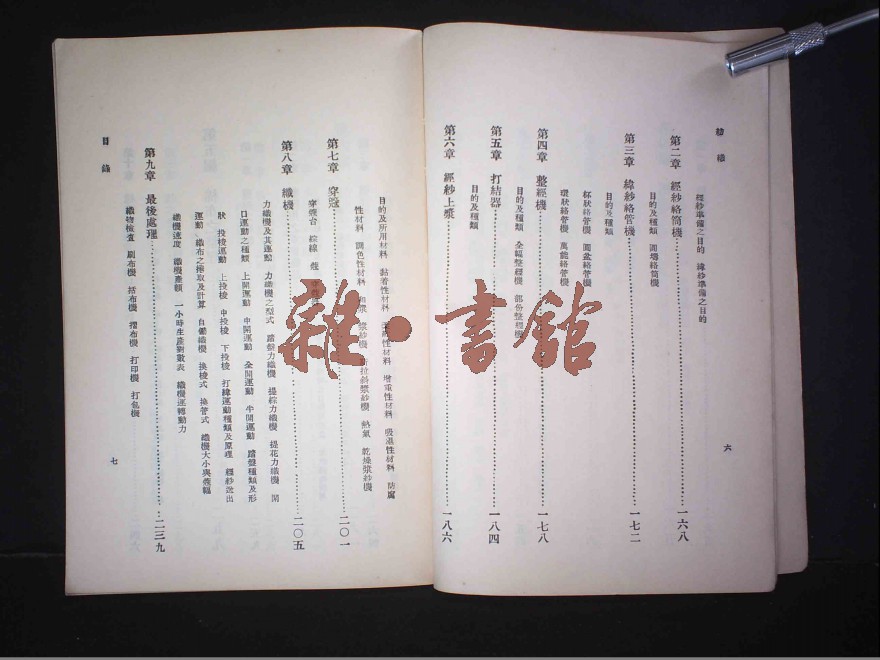 紡織
經紗準備之目的 緯紗準備之目的
第二章 經紗絡筒機 一六八
目的及種類
第三章 緯紗絡管機 一七二
目的及種類
杯狀絡管機 圓盆絡管機
環狀絡管機 萬能絡管機
第四章 整經機 一七八
目的及種類 全幅整經機 部份整經機
第五章 打結器 一八四
目的及種類
第六章 經紗上漿 一八六
六
目的及所用材料 黏着性材料 增重性材料 吸濕性材料 防腐
性材料 調色性材料 漿紗機 斯拉斜漿紗機 熱氣 乾燥漿紗機
第七章 穿冦 二〇一
穿冦台 綜線
第八章 織機 二〇五
力織機及其運動 力織機之型式 踏盤力織機 提綜力織機 提花力織機 開
口運動之種類 上開運動 中開運動 全開運動 半開運動 踏盤種類及形
狀 投梭運動 上投梭 中投梭 下投梭 打緯運動種類及原理 經紗送出
運動 織布之捲取及計算 自働織機 換梭式 換管式 織機大小與
織機速度 織機產額 一小時生產對數表 織機運轉動力
第九章 最後處理 二三九
織物檢查 刷布機 括布機 摺布機 打印機 打包機
目錄
七
雜·書館